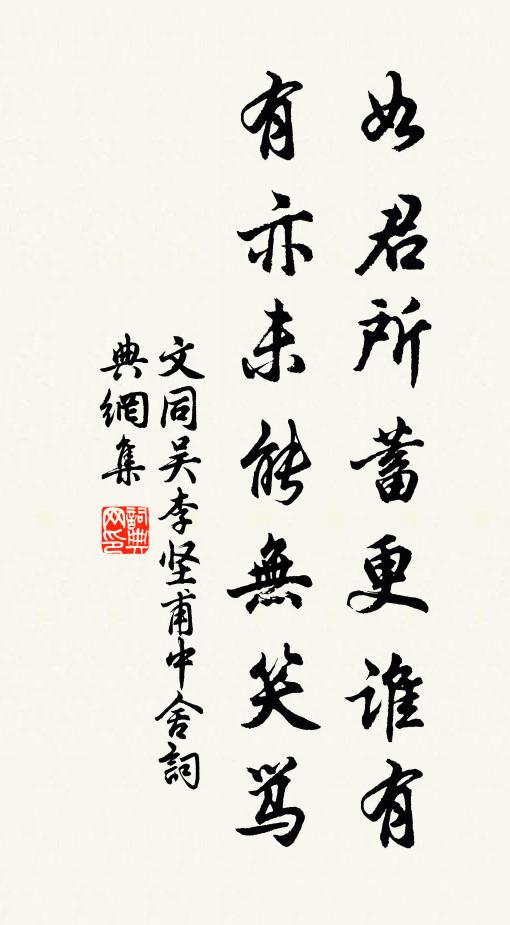 如君所蓄更谁有
有亦未能無笑骂
文同吴李坚甫中舍詞
典網集
詞典
网印